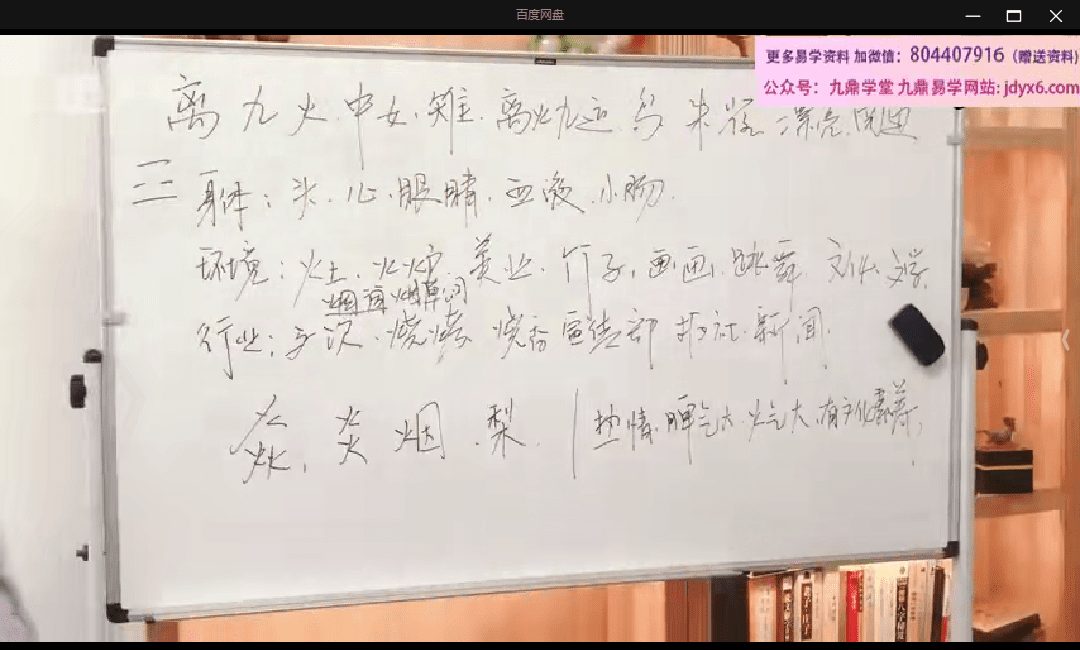 百度网盘
更多易学资料 加微信：804407916（赠送资料）
公众号：九鼎学堂 九鼎易学网站: jdyx6.com
离 九 火.中女.雉.离火九运.马 朱雀 漂亮
三 身体：头.心.眼睛.血液.小肠.
环境：火土.火炉.美业.竹子.画画.跳舞.文化.
烟酒烟草
行业：烧烤 烧香 宣传部 报社.新闻.
焱.炎 烟.梨.｜热情.脾气大.火气大.有文化素养,